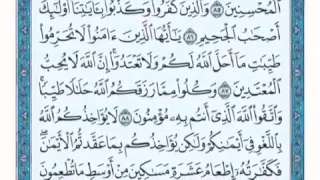 ٱلْمُحْسِنِينَ ٨٥ وَٱلَّذِينَ كَفَرُوا۟ وَكَذَّبُوا۟ بِـَٔايَٰتِنَآ أُو۟لَٰٓئِكَ
أَصْحَٰبُ ٱلْجَحِيمِ ٨٦ يَٰٓأَيُّهَا ٱلَّذِينَ ءَامَنُوا۟ لَا تُحَرِّمُوا۟
طَيِّبَٰتِ مَآ أَحَلَّ ٱللَّهُ لَكُمْ وَلَا تَعْتَدُوٓا۟ إِنَّ ٱللَّهَ لَا يُحِبُّ
ٱلْمُعْتَدِينَ ٨٧ وَكُلُوا۟ مِمَّا رَزَقَكُمُ ٱللَّهُ حَلَٰلًا طَيِّبًا
وَٱتَّقُوا۟ ٱللَّهَ ٱلَّذِىٓ أَنتُم بِهِۦ مُؤْمِنُونَ ٨٨ لَا يُؤَاخِذُكُمُ ٱللَّهُ
بِٱللَّغْوِ فِىٓ أَيْمَٰنِكُمْ وَلَٰكِن يُؤَاخِذُكُم بِمَا عَقَّدتُّمُ ٱلْأَيْمَٰنَ
فَكَفَّٰرَتُهُۥٓ إِطْعَامُ عَشَرَةِ مَسَٰكِينَ مِنْ أَوْسَطِ مَا تُطْعِمُونَ